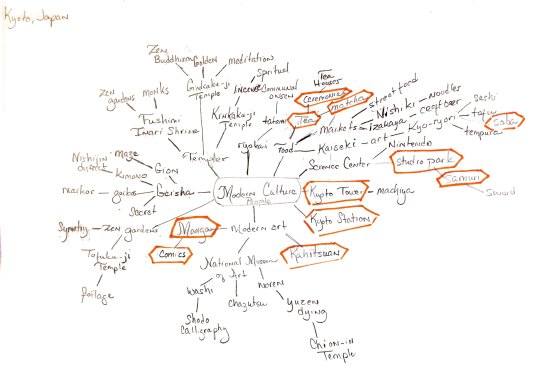 Kyoto, Japan
Zen
Buddhism
Golden
meditation
Ginkaku-ji
Temple
spiritual
incense
Communal
onsen
Kinkaku-ji
Temple
tatami
ryokai
Zen
gardens
monks
Fushimi
Inari Shrine
Temples
Tea
Houses
Ceremonies
matcha
tea
Food
street food
Markets
Nichiki
Izakaya
Noodles
Kyo-ryori
Sushi
tofu
Soba
tempura
Kaiseki
art
Nintendo
Science Center
studio park
Samuri
Sword
Modern Culture
People
Kyoto Tower
machiya
Kyoto Station
Nishijin
district
maze
Gion
Kimono
Geisha
geikos
Secret
Symmetry
Zen gardens
Tofuku-ji
Temple
foilage
Manga
Comics
Modern art
Kahitsukan
National Museum
of Art
washi
Shodo
Calligraphy
Chazutsu
noren
Yuzen
dying
Chion-in
Temple